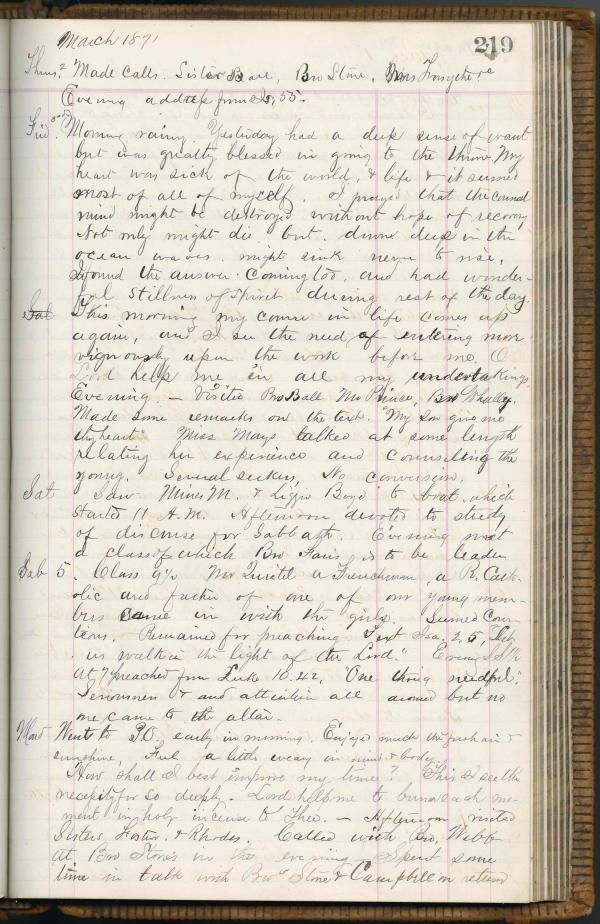 March 1871
219
Thurs. 2 Made calls. Sister Ball, Bro Stone, Mrs Forsythe &c
Evening address from Is. 55.
Frid 3rd Morning rainy Yesterday had a deep sense of want
but was greatly blessed in going to the throne My
heart was sick of the world, & life & it seemed
most of all of myself. I prayed that the carnal
mind might be destroyed without hope of recovery
Not only might die but down deep in the
ocean waves might sink never to rise,
I found the answer coming too, and had wonder-
ful stillness of spirit during rest of the day.
Sat This morning my course in life comes up
again, and I see the need of entering more
vigorously upon the work before me. O
Lord help me in all my undertakings.
Evening. — Visited Bro Ball Mr Prince, Bro Whalley.
Made some remarks on the text. "My son give me
thy heart" Miss Mays talked at some length
relating her experience and counseling the
young. Several seekers, No conversion.
Sat Saw M. & Lizzie Boyd to boat which
started 11 A.M. Afternoon devoted to study
of discourse for Sabbath. Evening met
a class of which Bro Faris is to be leader
Sab 5. Class 9½ Mr a Frenchman, a R. Cath-
olic and father of one of our young mem-
bers came in with the girls. Seemed Cour-
teous. Remained for preaching Text Isa. 2, 5, "Let
us walk in the light of the Lord." Evening
At 7 preached from Luke 10.42, "One thing needful".
Seriousness & and attention all around but no
one came to the altar.
Mond Went to P.O. early in morning. Enjoyed much the fresh air &
sunshine, Feel a little weary in mind & body.
How shall I best improve my time? This I see the
necessity for so deeply. Lord help me to burn each mo-
ment in holy incense to Thee. — Afternoon visited
Sisters Foster & Rhodes. Called with Bro. Webb
at Bro Stone's in the evening Spent some
time in talk with Bros Stone & Campbell on return